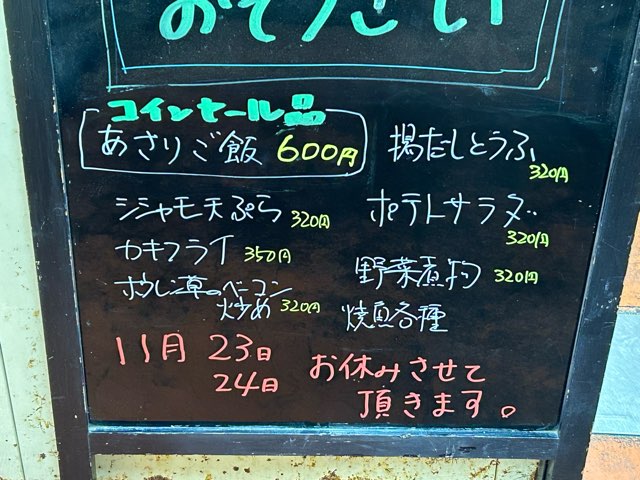 おそうざい
コインセール品
あさりご飯 600円
シシャモ天ぷら 320円
カキフライ 350円
ホウレン草のベーコン
炒め 320円
揚だしとうふ
320円
ポテトサラダ
320円
野菜煮物 320円
焼魚各種
11月 23日
24日
お休みさせて
頂きます。